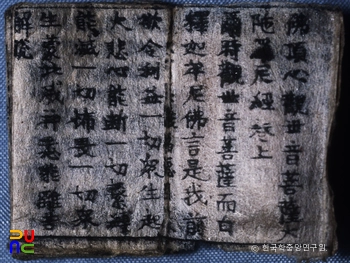 佛頂心觀世音菩薩大
陁羅尼經 卷上
爾時觀世音菩薩而白
釋迦牟尼佛言是我前
欲令利益一切衆生起
大悲心能斷一切繫縛
能滅一切怖畏一切衆
生蒙此威神悉能離苦
解脫
© 한국학중앙연구원